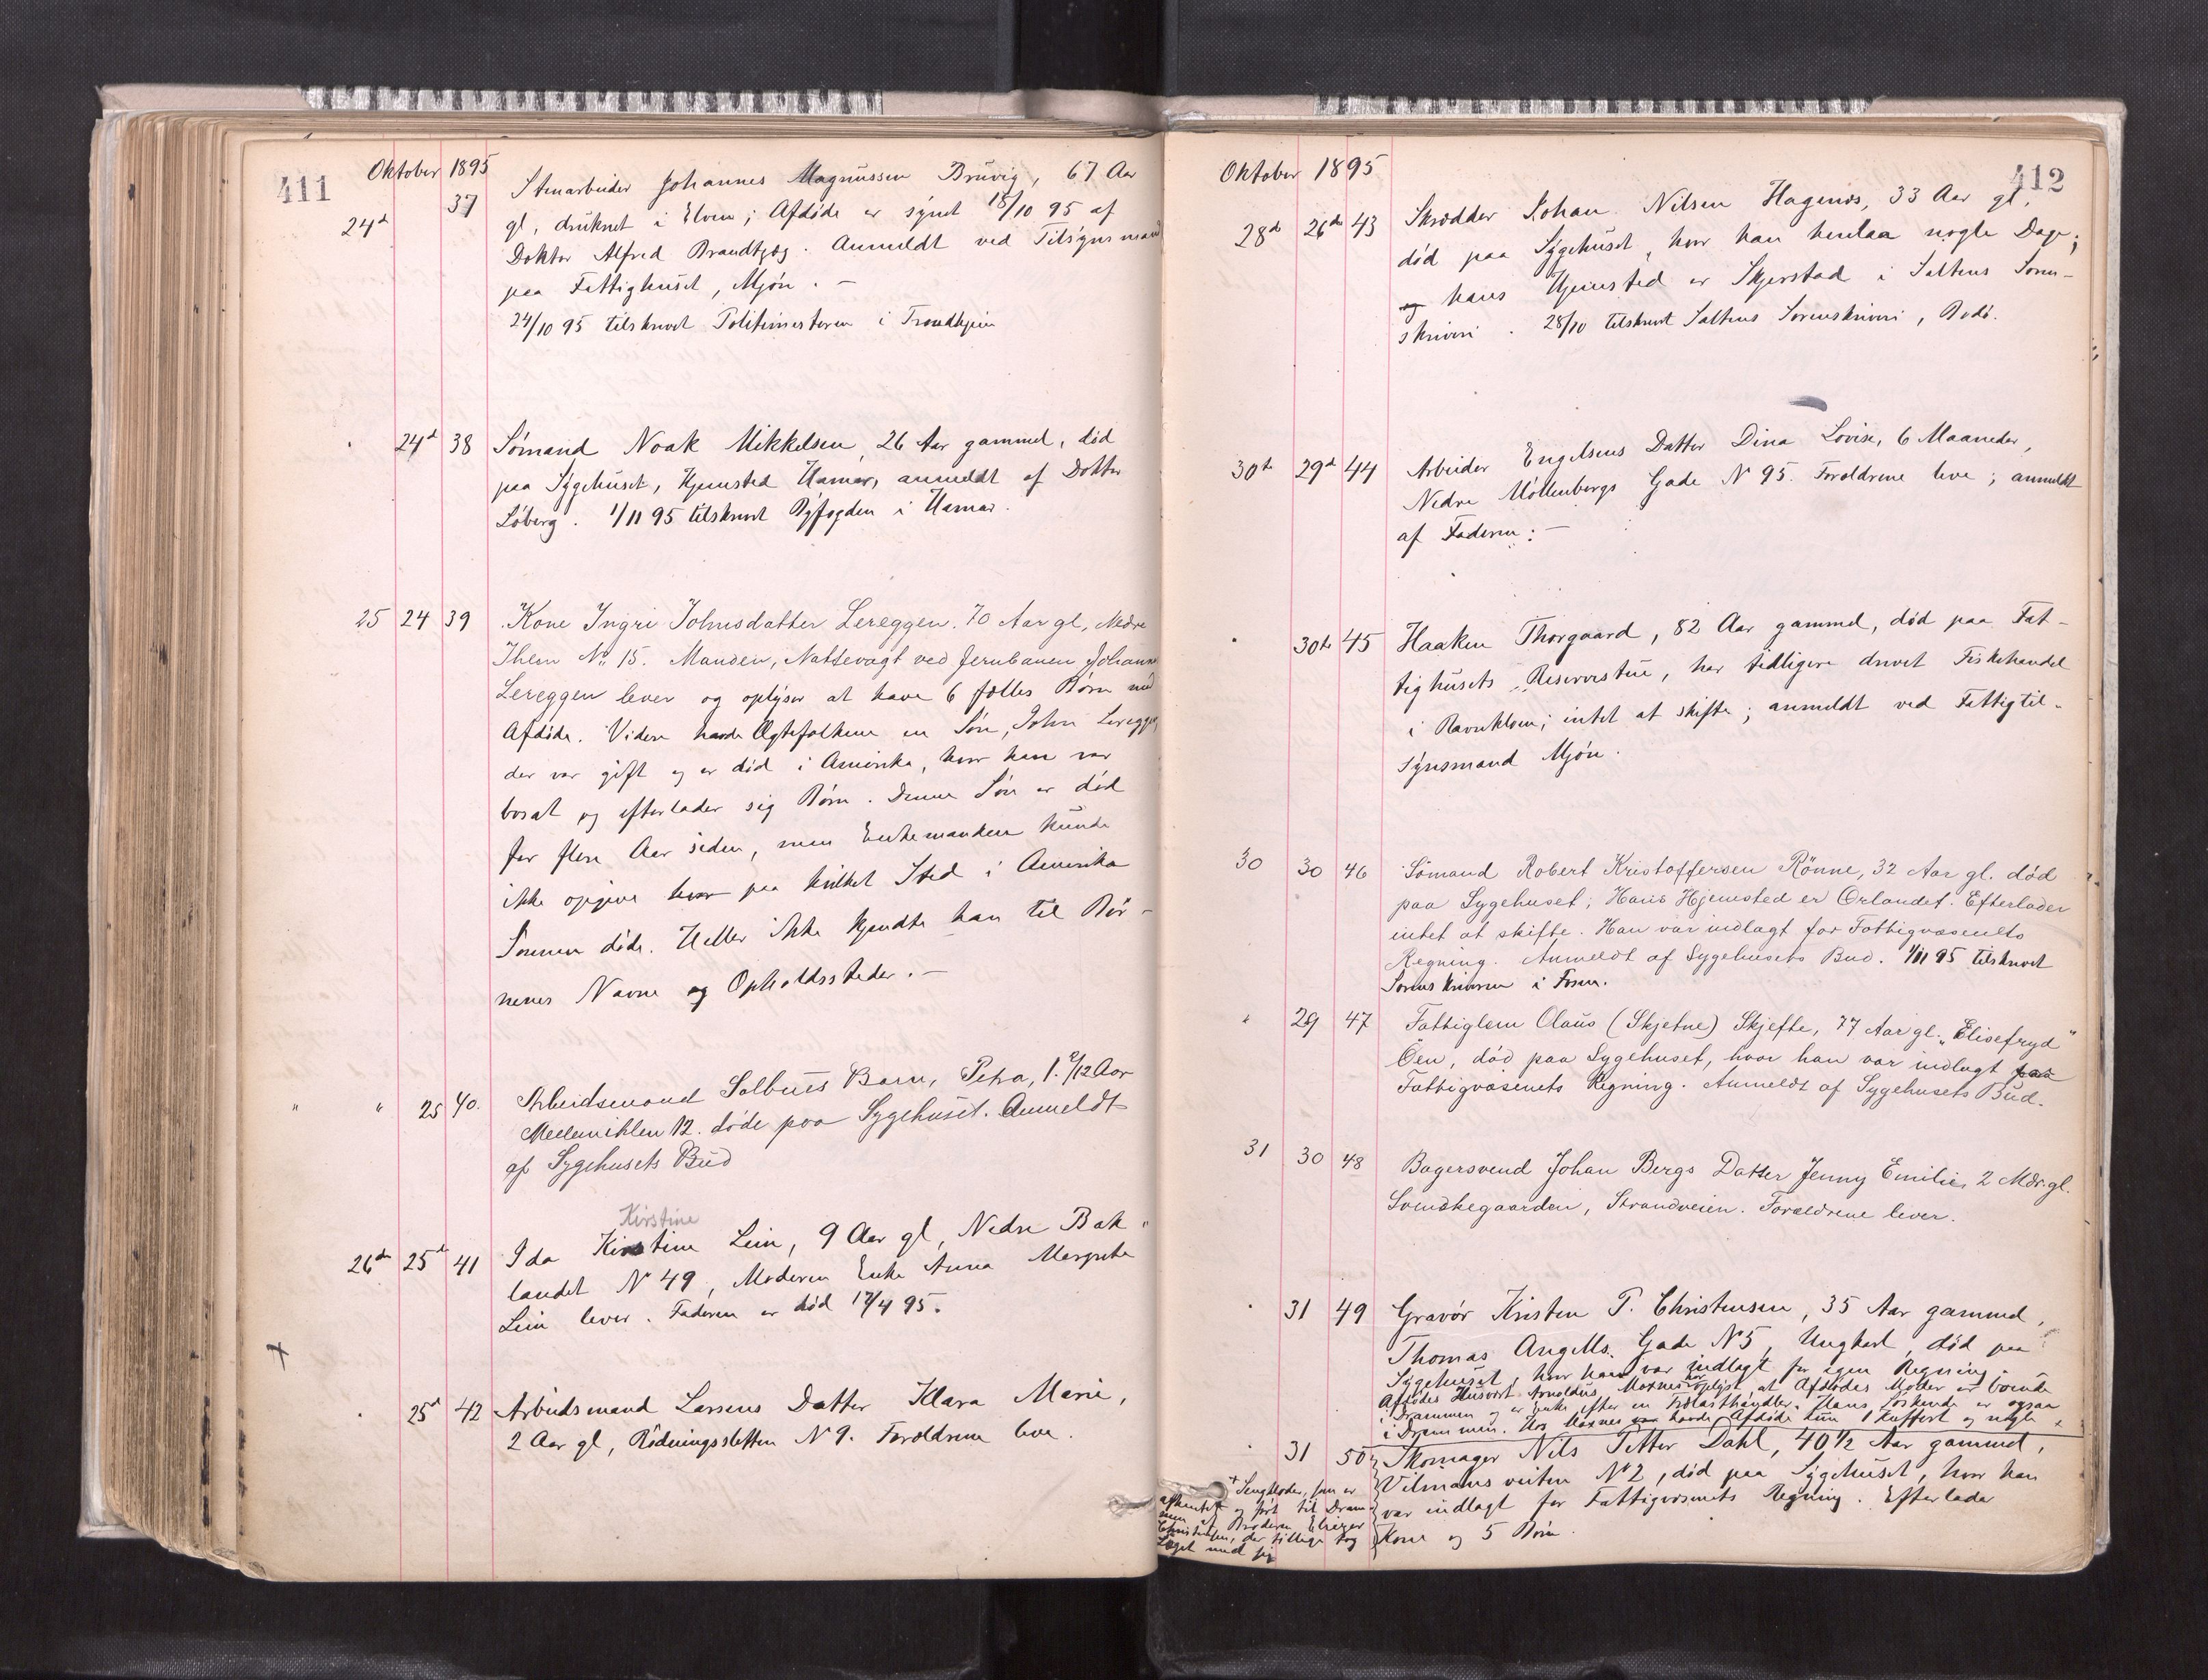 411
Oktober 1895
24d 37 Stenarbeider Johannes Magnussen Brüvig, 67 Aar
gl, druknet i Elven; Afdöde er synet 18/10 95 af
Doktor Alfred Brandtzæg. Anmeldt ved Tilsynsmand
paa Fattighuset, Mjön. –
24/10 95 tilskrevet Politimesteren i Trondhjem
24d 38 Sömand Noak Mikkelsen, 26 Aar gammel, död
paa Sygehuset, Hjemsted Hamar, anmeldt af Doktor
Löberg. 1/11 95 tilskrevet Byfogden i Hamar.
25 24 39 Kone Ingri Johnsdatter Lereggen. 70 Aar gl, Nedre
Ihlen No 15. Manden, Nattevagt ved Jernbanen Johannes
Lereggen lever og oplyser at have 6 fælles Börn med
Afdöde. Videre havde Ægtefolkene en Sön, John Lereggen,
der var gift og er död i Amerika, hvor han var
bosat og efterlader sig Börn. Denne Sön er död
for flere Aar siden, men Enkemanden kunde
ikke opgive hvor paa hvilket Sted i Amerika
Sönnen döde. Heller ikke kjendte han til Bör-
nenes Navne og Opholdssteder. –
" " 25 40. Arbeidsmand Solbues Barn, Petra, 1. 9/12 Aar
Mellemihlen 12. döde paa Sygehuset. Anmeldt
af Sygehusets Bud
Kirstine
26de 25d 41 Ida Kirstine Lein, 9 Aar gl, Nedre Bak-
landet N 49, Moderen Enke Anna Margrete
Lein lever. Faderen er död 17/4 95.
25d 42 Arbeidsmand Larsens Datter Klara Marie,
2 Aar gl, Rödningssletten N 9. Forældrene leve.
412
Oktober 1895
28de 26de 43 Skrædder Johan Nilsen Hagenæs, 33 Aar gl,
död paa Sygehuset, hvor han henlaa nogle Dage;
og hans Hjemsted er Skjerstad i Saltens Soren-
skriveri. 28/10 tilskrevet Saltens Sorenskriveri, Bodö.
30te 29d 44 Arbeider Engelsens Datter Dina Lovise, 6 Maaneder,
Nedre Möllenbergs Gade N 95. Forældrene leve; anmeldt
af Faderen: –
30te 45 Haaken Thorgaard, 82 Aar gammel, död paa Fat-
tighusets Reservestue, har tidligere drevet Fiskehandel
i Ravnkloen; intet at skifte; anmeldt ved Fattigtil-
synsmand Mjön.
30 30 46 Sömand Robert Kristoffersen Rönne, 32 Aar gl. död
paa Sygehuset; Hans Hjemsted er Örlandet. Efterlader
intet at skifte. Han var indlagt for Fattigvæsenets
Regning. Anmeldt af Sygehusets Bud. 1/11 95 tilskrevet
Sorenskriveren i Fosen.
" 29 47 Fattiglem Olaus (Skjetne) Skjefte, 77 Aar gl. "Elisefryd"
Öen, död paa Sygehuset, hvor han var indlagt paa
Fattigvæsenets Regning. Anmeldt af Sygehusets Bud.
31 30 48 Bagersvend Johan Bergs Datter Jenny Emilie, 2 Mdr. gl.
Svendskegaarden, Strandveien. Forældrene lever.
31 49 Gravör Kristen P. Christensen, 35 Aar gammel,
Thomas Angells Gade N 5, Ungkarl, död paa
Sygehuset, hvor han var indlagt for egen Regning.
Afdödes Husvært Arnoldus Moxnes har oplyst, at Afdödes Moder er boende
i Drammen og er Enke efter en Trælasthandler. Hans Söskende er ogsaa
i Drammen. Hos Moxnes havde Afdöde kun 1 Kuffert og nogle +
31 50 Skomager Nils Petter Dahl, 40 1/2 Aar gammel,
Vilmans veiten N 2, död paa Sygehuset, hvor han
var indlagt for Fattigvæsenets Regning. Efterlader
Kone og 5 Börn.
+ Sengklæder, som er
afhentet og fört til Dram-
men af Broderen
Christensen, der tillige tog
Liget med sig